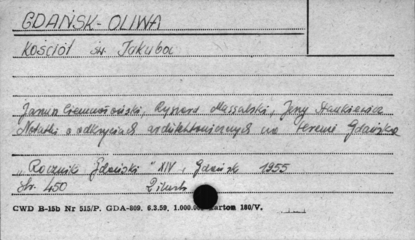 GDAŃSK-OLIWA
Kościół św. Jakuba
Janusz Ciemnołoński, Ryszard Massalski, Jerzy Stankiewicz
Notatki o odkryciach architektonicznych na terenie Gdańska
"Rocznik Gdański" XIV, Gdańsk 1955
Str. 450
CWD B-15b Nr 515/P. GDA-809. 6.3.59. 1.000.00 karton 180/V.